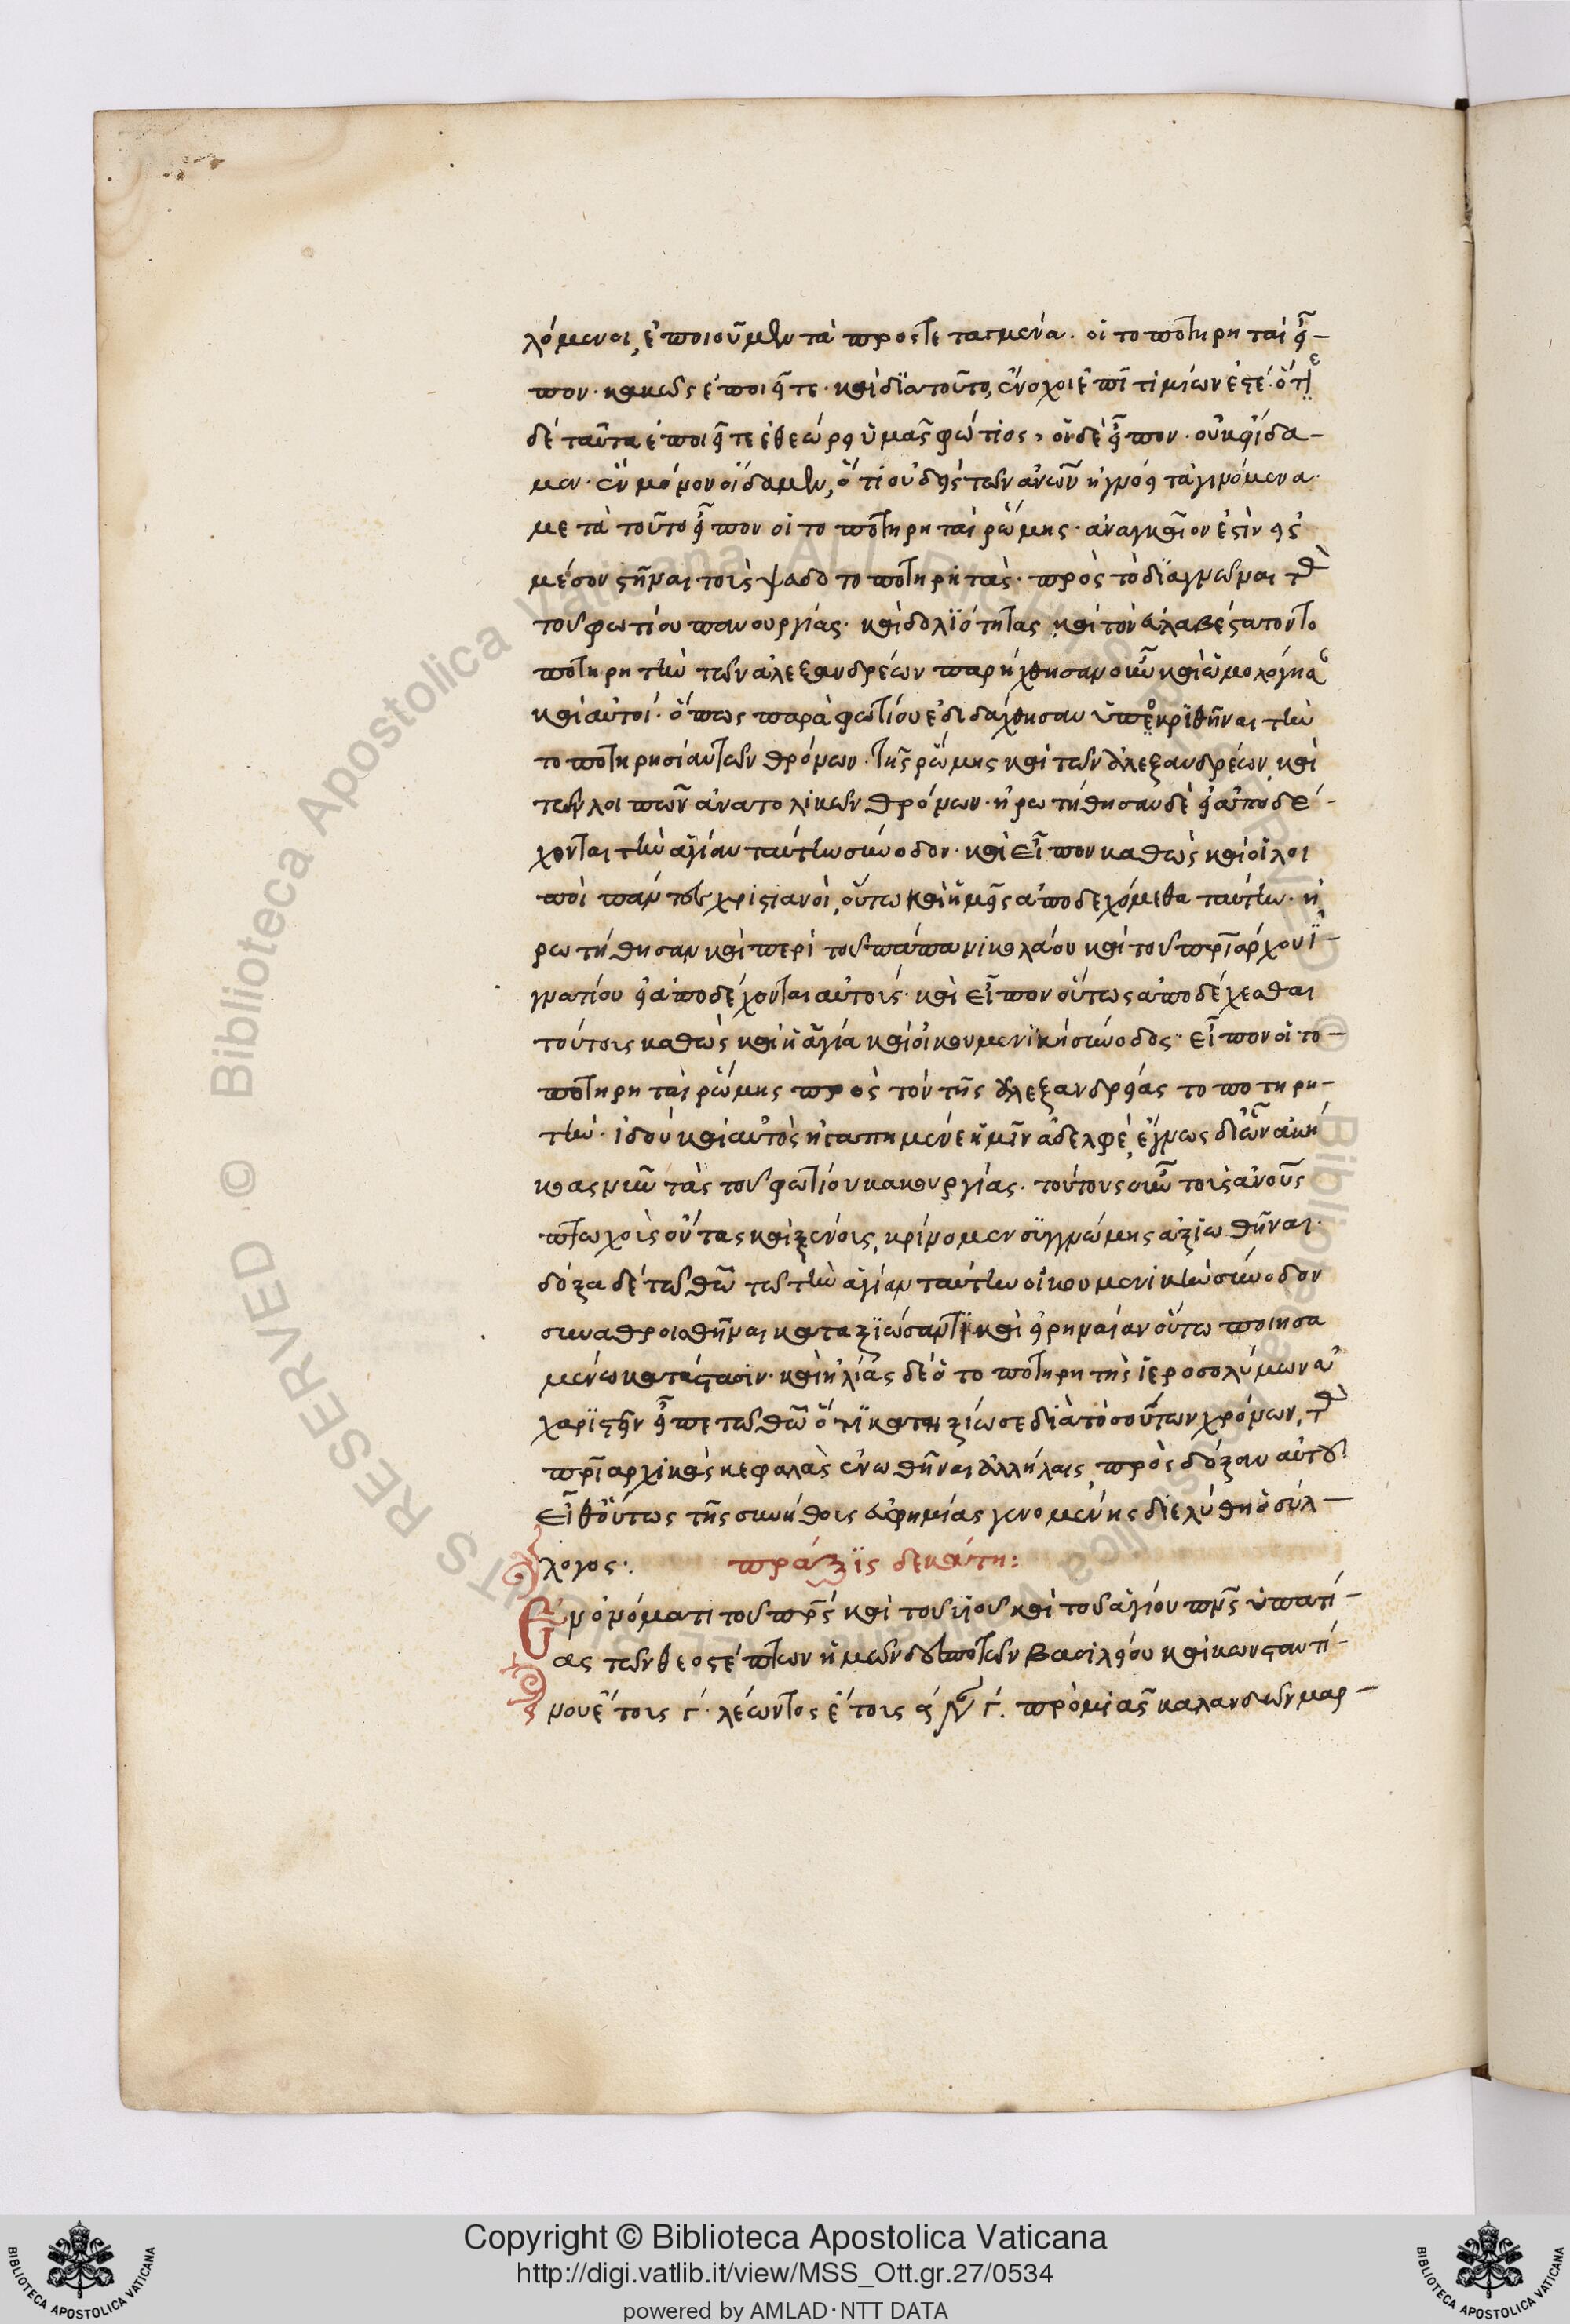 λόμενοι, ἐποιοῦμεν τὰ προστεταγμένα. οἱ τοποτηρηταὶ εἶ-
πον· κακῶς ἐποιεῖτε· καὶ διὰ τοῦτο, ἔνοχοι ἐπιτιμίων ἐστέ· ὅτε
δὲ ταῦτα ἐποιεῖτε ἐθεώρει ὑμᾶς φώτιος, οἱ δὲ εἶπον· οὐκ οἴδα-
μεν· ἓν μόνον οἴδαμεν, ὅτι οὐδεὶς τῶν ἀνῶν ἠγνόει τὰ γινόμενα.
μετὰ τοῦτο εἶπον οἱ τοποτηρηταὶ ῥώμης· ἀναγκαῖον ἐστὶν εἰς
μέσον στῆναι τοὺς ψευδοτοποτηρητάς· πρὸς τὸ διαγνῶναι τὰς
τοῦ φωτίου πανουργίας· καὶ δολιότητας καὶ τὸν εὐλαβέστατον το
ποτηρητὴν τῶν ἀλεξανδρέων παρήχθησαν οὖν καὶ ὡμολόγησαν
καὶ αὐτοί· ὅπως παρὰ φωτίου ἐδιδάχθησαν ὑποκριθῆναι τὴν
τοποτηρησίαν τῶν θρόνων· τῆς ῥώμης καὶ τῶν ἀλεξανδρέων, καὶ
τῶν λοιπῶν ἀνατολικῶν θρόνων· ἠρωτήθησαν δὲ εἰ ἀποδέ-
χονται τὴν ἁγίαν ταύτην σύνοδον· καὶ εἶπον καθὼς καὶ οἱ λοι
ποὶ πάντες χριστιανοὶ, οὕτω καὶ ἡμεῖς ἀποδεχόμεθα ταύτην· ἠ
ρωτήθησαν καὶ περὶ τοῦ πάπα νικολάου καὶ τοῦ πριάρχου ἰ-
γνατίου εἰ ἀποδέχονται αὐτούς· καὶ εἶπον οὕτως ἀποδέχεσθαι
τούτους καθὼς καὶ ἡ ἁγία καὶ οἰκουμενικὴ σύνοδος· εἶπον οἱ το-
ποτηρηταὶ ῥώμης πρὸς τὸν τῆς ἀλεξανδρείας τοποτηρη-
τήν· ἰδοὺ καὶ αὐτὸς ἠγαπημένε ἡμῖν ἀδελφὲ, ἔγνως δι' ὧν ἀκή
κοας νῦν τὰς τοῦ φωτίου κακουργίας. τούτους οὖν τοὺς ἀνους
πτωχοὺς ὄντας καὶ ξένους, κρίνομεν συγγνώμης ἀξιωθῆναι.
δόξα δὲ τῷ θῶ τῷ τὴν ἁγίαν ταύτην οἰκουμενικὴν σύνοδον
συναθροισθῆναι καταξιώσαντι καὶ εἰρηναίαν οὕτω ποιησα
μένω κατάστασιν· καὶ ἠλίας δὲ ὁ τοποτηρητὴς ἱεροσολύμων εὐ
χαριστεῖν εἶπε τῷ θῶ ὅτι κατηξίωσε διὰ τοσούτων χρόνων, τὰς
πριαρχικὰς κεφαλὰς ἑνωθῆναι ἀλλήλαις, πρὸς δόξαν αὐτοῦ
εἶθ' οὕτως τῆς συνήθους εὐφημίας γενομένης διελύθη ὁ σύλ-
λογος·. πράξις δεκάτη:
Ἐν ὀνόματι τοῦ πρς καὶ τοῦ υἱοῦ καὶ τοῦ ἁγίου πνς ὑπατί-
ας τῶν θεοστέπτων ἡμῶν δεσποτῶν βασιλείου καὶ κωνσταντί-
νου ἔτους γ΄· λέωντος ἔτους α΄ ἰν γ΄. πρὸ μιᾶς καλανδῶν μαρ-